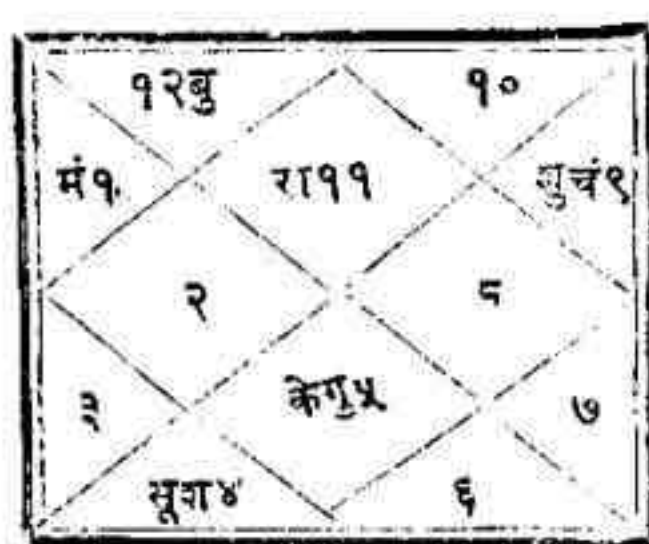 १२बु १०
मं१ रा११ शुचं९
२ ८
३ केगु५ ७
सूश४ ६